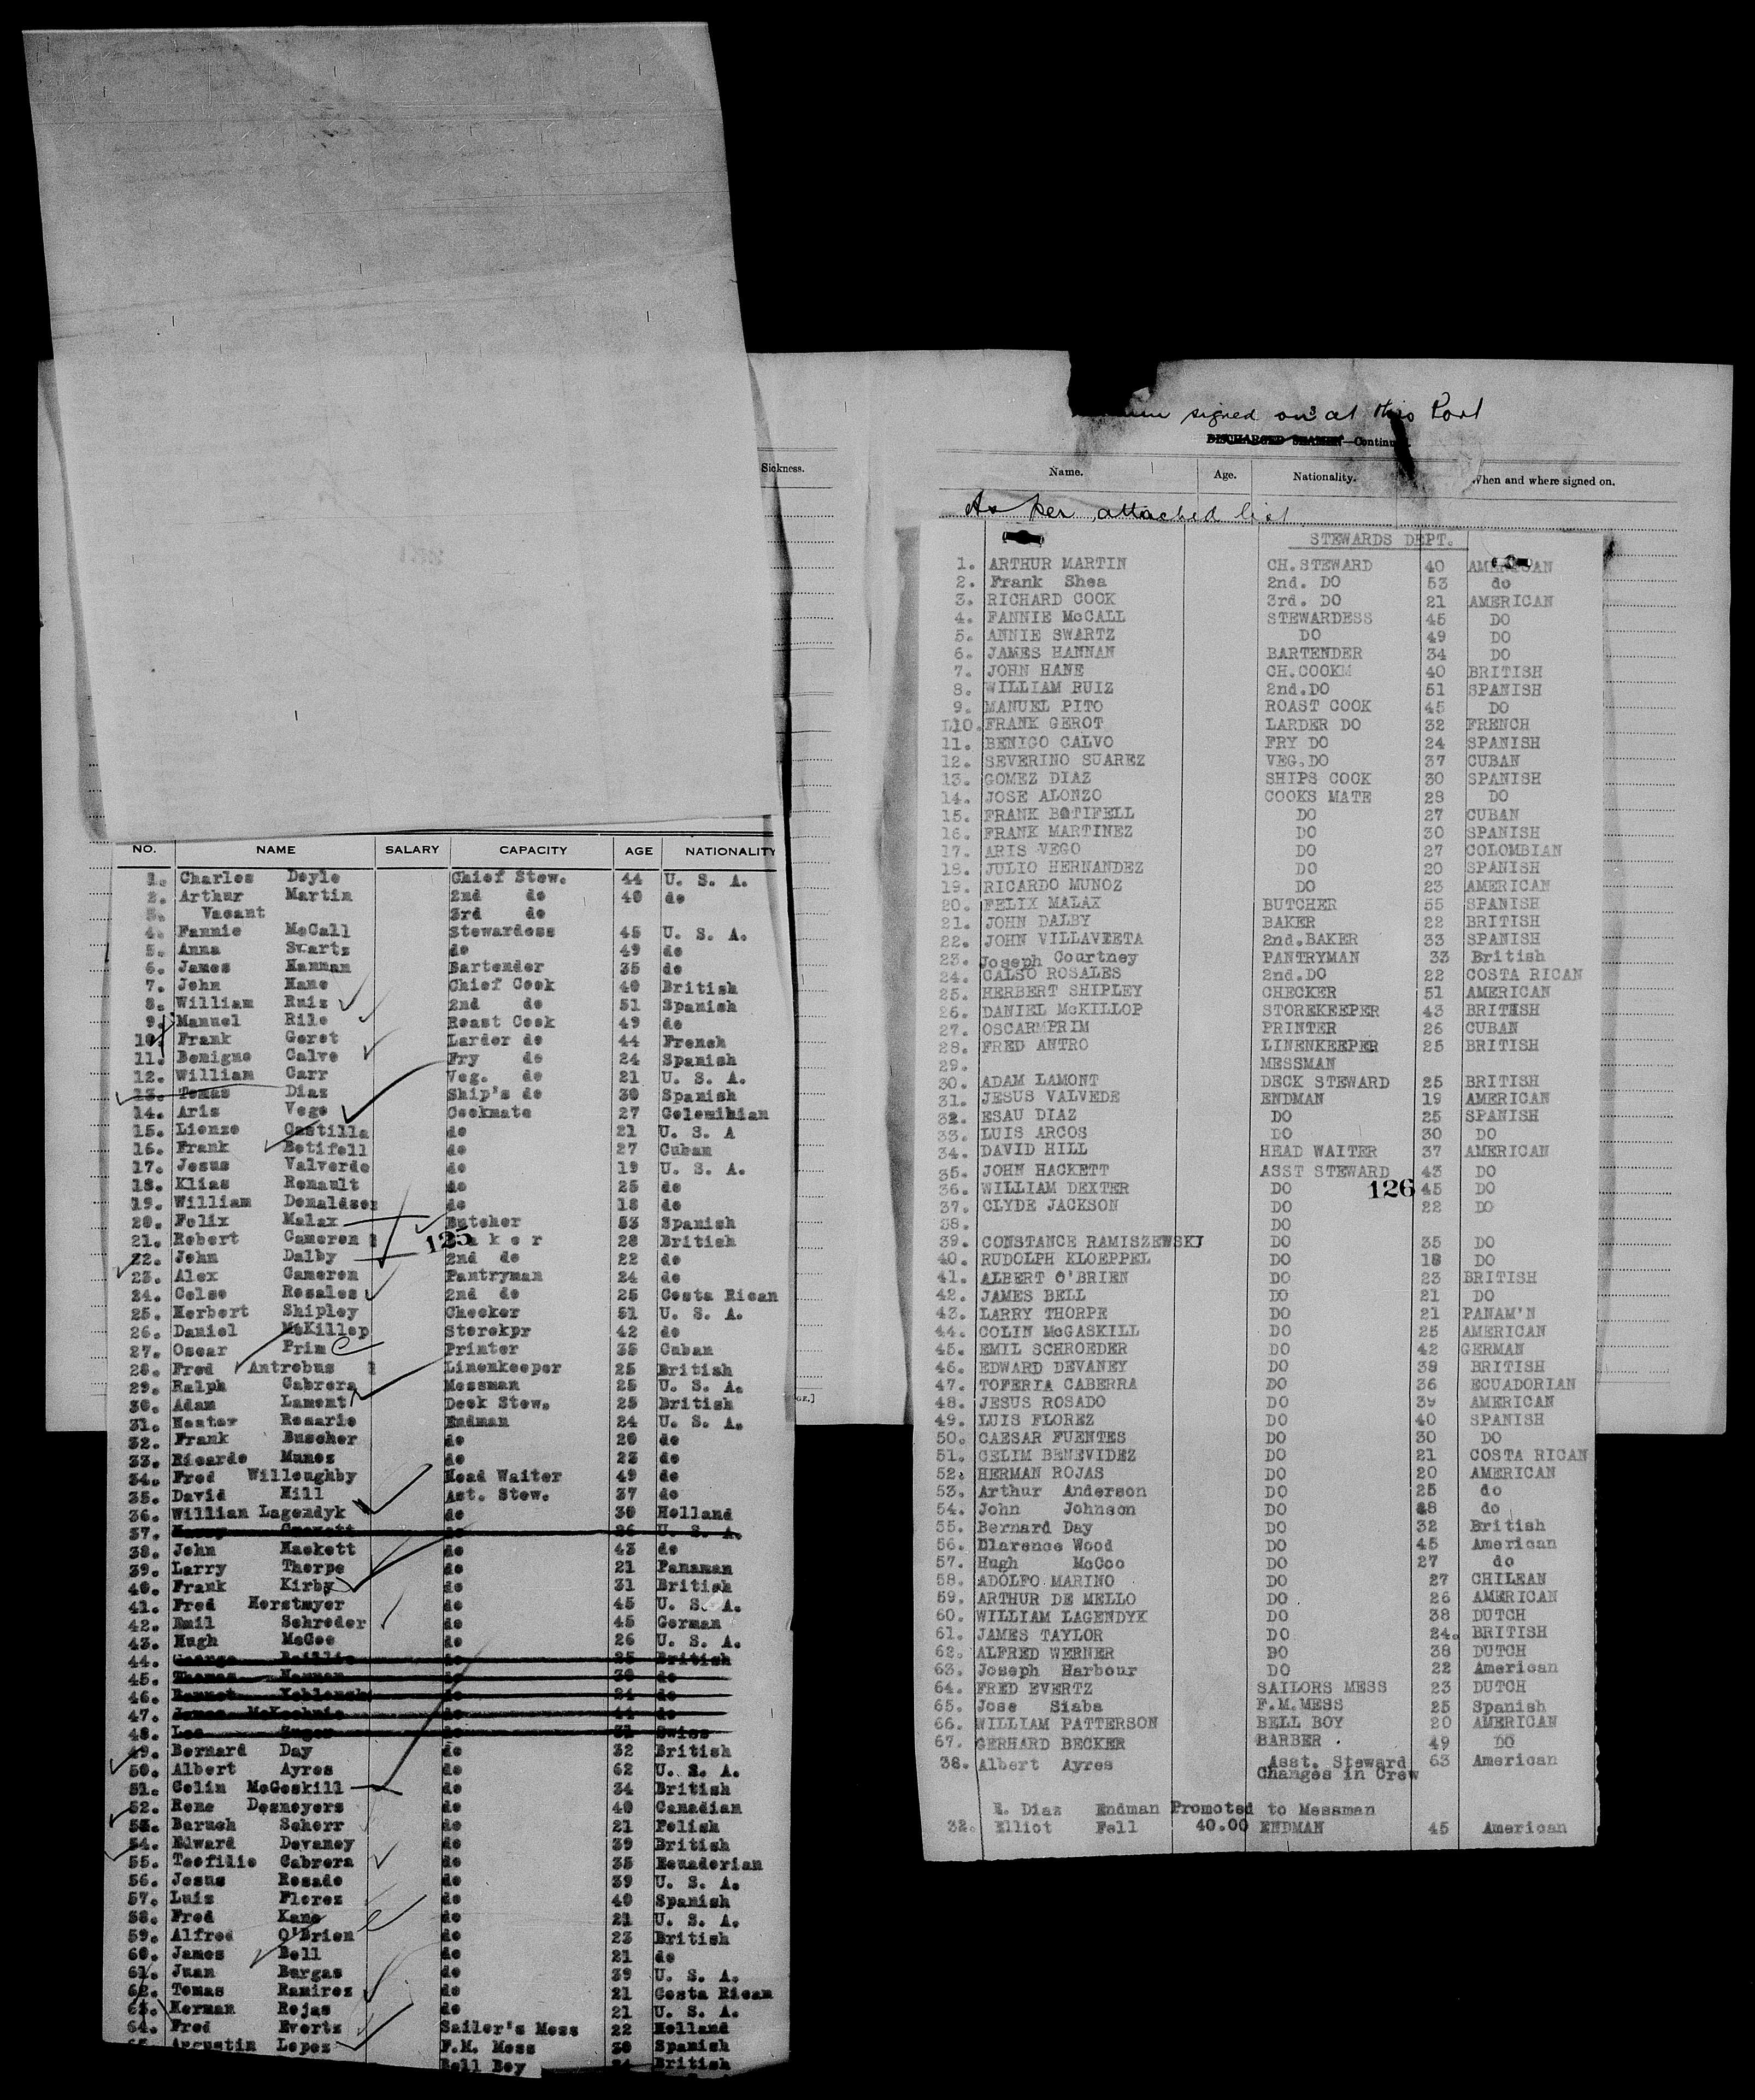 Sickness.
NO. NAME SALARY CAPACITY AGE NATIONALITY
1. Charles Doyle Chief Stew. 44 U. S. A.
2. Arthur Martin 2nd do 40 do
3. Vacant 3rd do
4. Fannie McCall Stewardess 45 U. S. A.
5. Anna Swartz do 49 do
6. James Hannan Bartender 35 do
7. John Hane Chief Cook 40 British
8. William Ruiz 2nd do 51 Spanish
9. Manuel Rile Roast Cook 49 do
10. Frank Gerot Larder do 44 French
11. Benigno Calvo Fry do 24 Spanish
12. William Carr Veg. do 21 U. S. A.
13. Tomas Diaz Ship's do 30 Spanish
14. Aris Vego Cookmate 27 Colombian
15. Lionzo Castilla do 21 U. S. A
16. Frank Botifoll do 27 Cuban
17. Jesus Valverde do 19 U. S. A.
18. Klias Renault do 25 do
19. William Donaldson do 18 do
20. Felix Malax Butcher 53 Spanish
21. Robert Cameron B a k e r 28 British
125
22. John Dalby 2nd do 22 do
23. Alex Cameron Pantryman 24 do
24. Celso Rosales 2nd do 25 Costa Rican
25. Herbert Shipley Checker 51 U. S. A.
26. Daniel McKillop Storekpr 42 do
27. Oscar Prim Printer 35 Cuban
28. Fred Antrobus Linenkeeper 25 British
29. Ralph Cabrera Messman 25 U. S. A.
30. Adam Lamont Deck Stew. 25 British
31. Hester Rosario Endman 24 U. S. A.
32. Frank Buscher do 20 do
33. Ricardo Munoz do 23 do
34. Fred Willoughby Head Waiter 49 do
35. David Hill Ast. Stew. 37 do
36. William Lagendyk do 30 Holland
37. 26 U. S. A.
38. John Hackett do 43 do
39. Larry Thorpe do 21 Panaman
40. Frank Kirby do 31 British
41. Fred Horstmyer do 45 U. S. A.
42. Emil Schroder do 45 German
43. Hugh McGoo do 26 U. S. A.
44. George Baillie do 25 British
45. Thomas do 30 do
46. do 24 do
47. James McKechnie do 44 do
48. Leo do 31 Swiss
49. Bernard Day do 32 British
50. Albert Ayres do 62 U. S. A.
51. Colin McGoskill do 34 British
52. Rene Desmeyers do 40 Canadian
53. Baruch Scherr do 21 Polish
54. Edward Devaney do 39 British
55. Teofilio Cabrera do 35 Ecuadorian
56. Jesus Rosado do 39 U. S. A.
57. Luis Florez do 40 Spanish
58. Fred Kane do 21 U. S. A.
59. Alfred O'Brien do 23 British
60. James Bell do 21 do
61. Juan Burgas do 39 U. S. A.
62. Tomas Ramirez do 21 Costa Rican
63. Herman Rojas do 21 U. S. A.
64. Fred Evertz Sailor's Mess 22 Holland
65. Augustin Lopez F.M. Mess 30 Spanish
Bell Boy British
signed on at this Port
DISCHARGED SEAMEN—Continued.
Name. Age. Nationality. When and where signed on.
As per attached list
STEWARDS DEPT.
1. ARTHUR MARTIN CH. STEWARD 40 AMERICAN
2. Frank Shea 2nd. DO 53 do
3. RICHARD COOK 3rd. DO 21 AMERICAN
4. FANNIE McCALL STEWARDESS 45 DO
5. ANNIE SWARTZ DO 49 DO
6. JAMES HANNAN BARTENDER 34 DO
7. JOHN HANE CH.COOKM 40 BRITISH
8. WILLIAM RUIZ 2nd.DO 51 SPANISH
9. MANUEL PITO ROAST COOK 45 DO
L10. FRANK GEROT LARDER DO 32 FRENCH
11. BENIGO CALVO FRY DO 24 SPANISH
12. SEVERINO SUAREZ VEG.DO 37 CUBAN
13. GOMEZ DIAZ SHIPS COOK 30 SPANISH
14. JOSE ALONZO COOKS MATE 28 DO
15. FRANK BOTIFELL DO 27 CUBAN
16. FRANK MARTINEZ DO 30 SPANISH
17. ARIS VEGO DO 27 COLOMBIAN
18. JULIO HERNANDEZ DO 20 SPANISH
19. RICARDO MUNOZ DO 23 AMERICAN
20. FELIX MALAX BUTCHER 55 SPANISH
21. JOHN DALBY BAKER 22 BRITISH
22. JOHN VILLAVIETA 2nd.BAKER 33 SPANISH
23. Joseph Courtney PANTRYMAN 33 British
24. CALSO ROSALES 2nd.DO 22 COSTA RICAN
25. HERBERT SHIPLEY CHECKER 51 AMERICAN
26. DANIEL McKILLOP STOREKEEPER 43 BRITISH
27. OSCARMPRIM PRINTER 26 CUBAN
28. FRED ANTRO LINENKEEPER 25 BRITISH
29. MESSMAN
30. ADAM LAMONT DECK STEWARD 25 BRITISH
31. JESUS VALVEDE ENDMAN 19 AMERICAN
32. ESAU DIAZ DO 25 SPANISH
33. LUIS ARCOS DO 30 DO
34. DAVID HILL HEAD WAITER 37 AMERICAN
35. JOHN HACKETT ASST STEWARD 43 DO
36. WILLIAM DEXTER DO 126 45 DO
37. CLYDE JACKSON DO 22 DO
38. DO
39. CONSTANCE RAMISZEWSKI DO 35 DO
40. RUDOLPH KLOEPPEL DO 18 DO
41. ALBERT O'BRIEN DO 23 BRITISH
42. JAMES BELL DO 21 DO
43. LARRY THORPE DO 21 PANAM'N
44. COLIN McGASKILL DO 25 AMERICAN
45. EMIL SCHROEDER DO 42 GERMAN
46. EDWARD DEVANEY DO 39 BRITISH
47. TOFERIA CABERRA DO 36 ECUADORIAN
48. JESUS ROSADO DO 39 AMERICAN
49. LUIS FLOREZ DO 40 SPANISH
50. CAESAR FUENTES DO 30 DO
51. CELIM BENEVIDEZ DO 21 COSTA RICAN
52. HERMAN ROJAS DO 20 AMERICAN
53. Arthur Anderson DO 25 do
54. John Johnson DO 28 do
55. Bernard Day DO 32 British
56. Dlarence Wood DO 45 American
57. Hugh McGoo DO 27 do
58. ADOLFO MARINO DO 27 CHILEAN
59. ARTHUR DE MELLO DO 26 AMERICAN
60. WILLIAM LAGENDYK DO 38 DUTCH
61. JAMES TAYLOR DO 24. BRITISH
62. ALFRED WERNER DO 38 DUTCH
63. Joseph Harbour DO 22 American
64. FRED EVERTZ SAILORS MESS 23 DUTCH
65. Jose Siaba F.M.MESS 25 Spanish
66. WILLIAM PATTERSON BELL BOY 20 AMERICAN
67. GERHARD BECKER BARBER . 49 DO
38. Albert Ayres Asst. Steward 63 American
Changes in Crew
E. Diaz Endman Promoted to Messman
32. Elliot Fell 40.00 ENDMAN 45 American